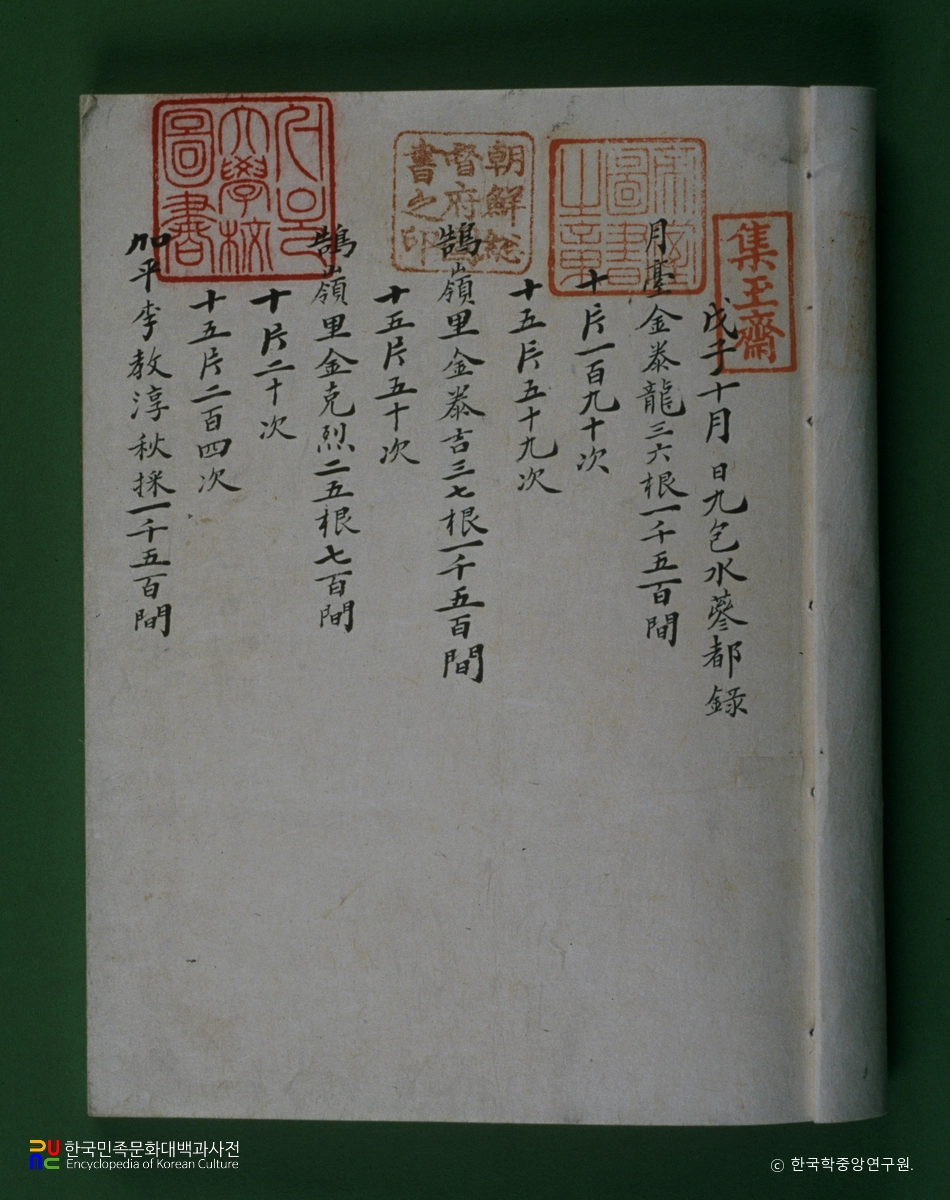 集玉齋
戊子十月 日九包水蔘都錄
帝室圖書之章
月臺金泰龍三六根一千五百間
十片一百九十次
十五片五十九次
朝鮮総督府圖書之印
鵠嶺里金泰吉三七根一千五百間
十五片五十次
鵠嶺里金克烈二五根七百間
十片二十次
十五片二百四次
大學校圖書
加平李教淳秋採一千五百間
한국민족문화대백과사전
Encyclopedia of Korean Culture
ⓒ 한국학중앙연구원.